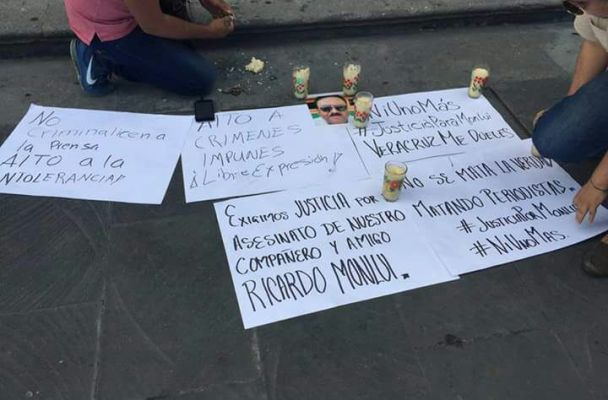 No
criminalicen a
la Prensa
ALTO a la
INTOLERANCIA!
ALTO A
CRIMENES
IMPUNES
¡Libre Expresión!
#NiUnoMás
#JusticiaParaMonlui
VERACRUZ ME DUELES
EXIGIMOS JUSTICIA POR
ASESINATO DE NUESTRO
COMPAÑERO Y AMIGO
RICARDO MONLUI.
NO SE MATA LA VERDAD
MATANDO PERIODISTAS.
#JUSTICIAPORMONLUI
#NIUNOMÁS.